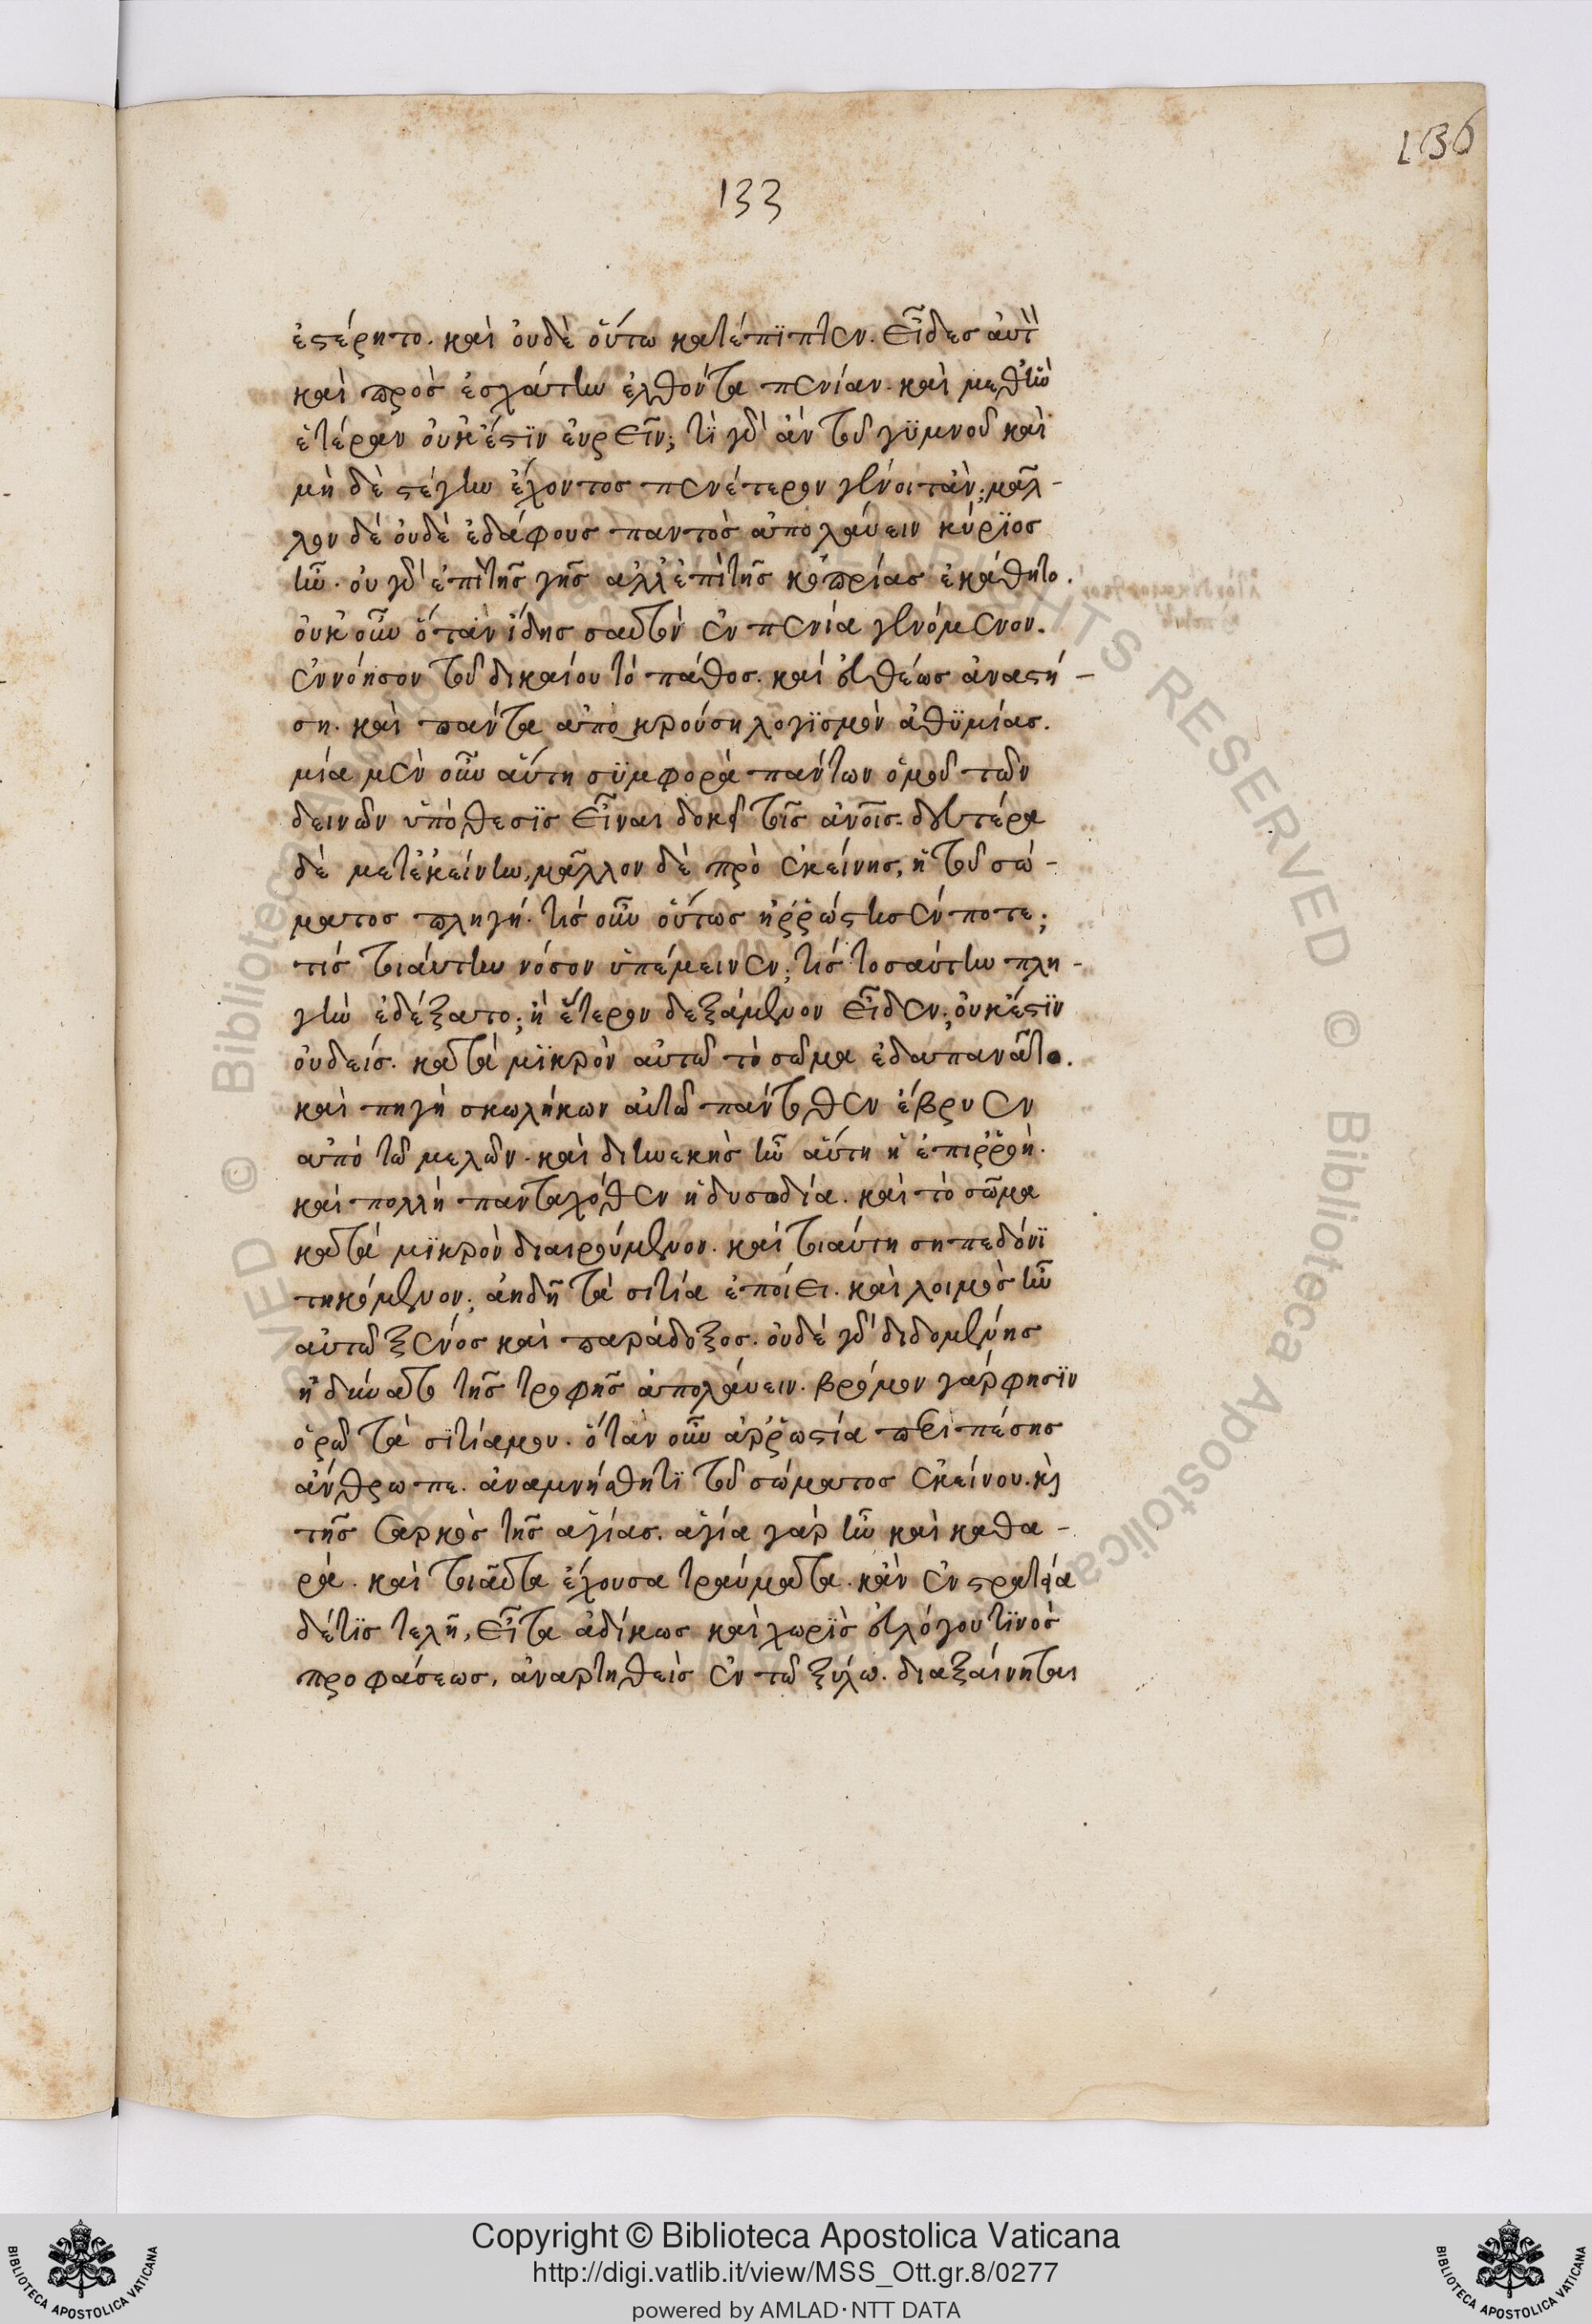 136
133
ἐστέρητο. καὶ οὐδὲ οὕτω κατέπιπτεν. εἶδες αὐτὸν
καὶ πρὸς ἐσχάτην ἐλθόντα πενίαν. καὶ μεθ' ἣν
ἑτέραν οὐκ ἔστιν εὑρεῖν; τί γὰρ ἂν τοῦ γυμνοῦ καὶ
μὴ δὲ στέγην ἔχοντος πενέστερον γένοιτ' ἄν; μᾶλ-
λον δὲ οὐδὲ ἐδάφους παντὸς ἀπολαύειν κύριος
ἦν. οὐ γὰρ ἐπὶ τῆς γῆς ἀλλ' ἐπὶ τῆς κοπρίας ἐκάθητο.
οὐκ οὖν ὅταν ἴδῃς σαυτὸν ἐν πενία γενόμενον.
ἐννόησον τοῦ δικαίου τὸ πάθος. καὶ εὐθέως ἀναστή-
ση. καὶ πάντα ἀποκρούση λογισμὸν ἀθυμίας.
μία μὲν οὖν αὕτη συμφορὰ πάντων ὁμοῦ τῶν
δεινῶν ὑπόθεσις εἶναι δοκεῖ τοῖς ἀνοις. δευτέρα
δὲ μετ' ἐκείνην, μᾶλλον δὲ πρὸ ἐκείνης, ἡ τοῦ σώ-
ματος πληγή. τίς οὖν οὕτως ἠῤῥώστησέν ποτε;
τίς τοιαύτην νόσον ὑπέμεινεν; τίς τοσαύτην πλη-
γὴν ἐδέξατο; ἢ ἕτερον δεξάμενον εἶδεν; οὐκ ἔστιν
οὐδείς. κατὰ μικρὸν αὐτῶ τὸ σῶμα ἐδαπανᾶτο.
καὶ πηγὴ σκωλήκων αὐτῶ πάντοθεν ἔβρυεν
ἀπὸ τῶν μελῶν. καὶ διηνεκὴς ἦν αὕτη ἡ ἐπιῤῥοή.
καὶ πολλὴ πανταχόθεν ἡ δυσωδία. καὶ τὸ σῶμα
κατὰ μικρὸν διαιρούμενον. καὶ τοιαύτη σηπεδόνι
τηκόμενον; ἀηδῆ τὰ σιτία ἐποίει. καὶ λοιμὸς ἦν
αὐτῶ ξένος καὶ παράδοξος. οὐδὲ γὰρ διδομένης
ἠδύνατο τῆς τροφῆς ἀπολαύειν. βρόμον γάρ φησιν
ὁρῶ τὰ σιτία μου. ὅταν οὖν ἀῤῥωστία περιπέσης
ἄνθρωπε. ἀναμνήσθητι τοῦ σώματος ἐκείνου. καὶ
τῆς σαρκὸς τῆς ἁγίας. ἁγία γὰρ ἦν καὶ καθα-
ρά. καὶ τοιαῦτα ἔχουσα τραύματα. κἂν ἐν στρατεία
δέ τις τελῆ, εἶτα ἀδίκως καὶ χωρὶς εὐλόγου τινὸς
προφάσεως, ἀναρτηθεὶς ἐν τῶ ξύλω. διαξαίνηται
Copyright © Biblioteca Apostolica Vaticana
http://digi.vatlib.it/view/MSS_Ott.gr.8/0277
powered by AMLAD·NTT DATA